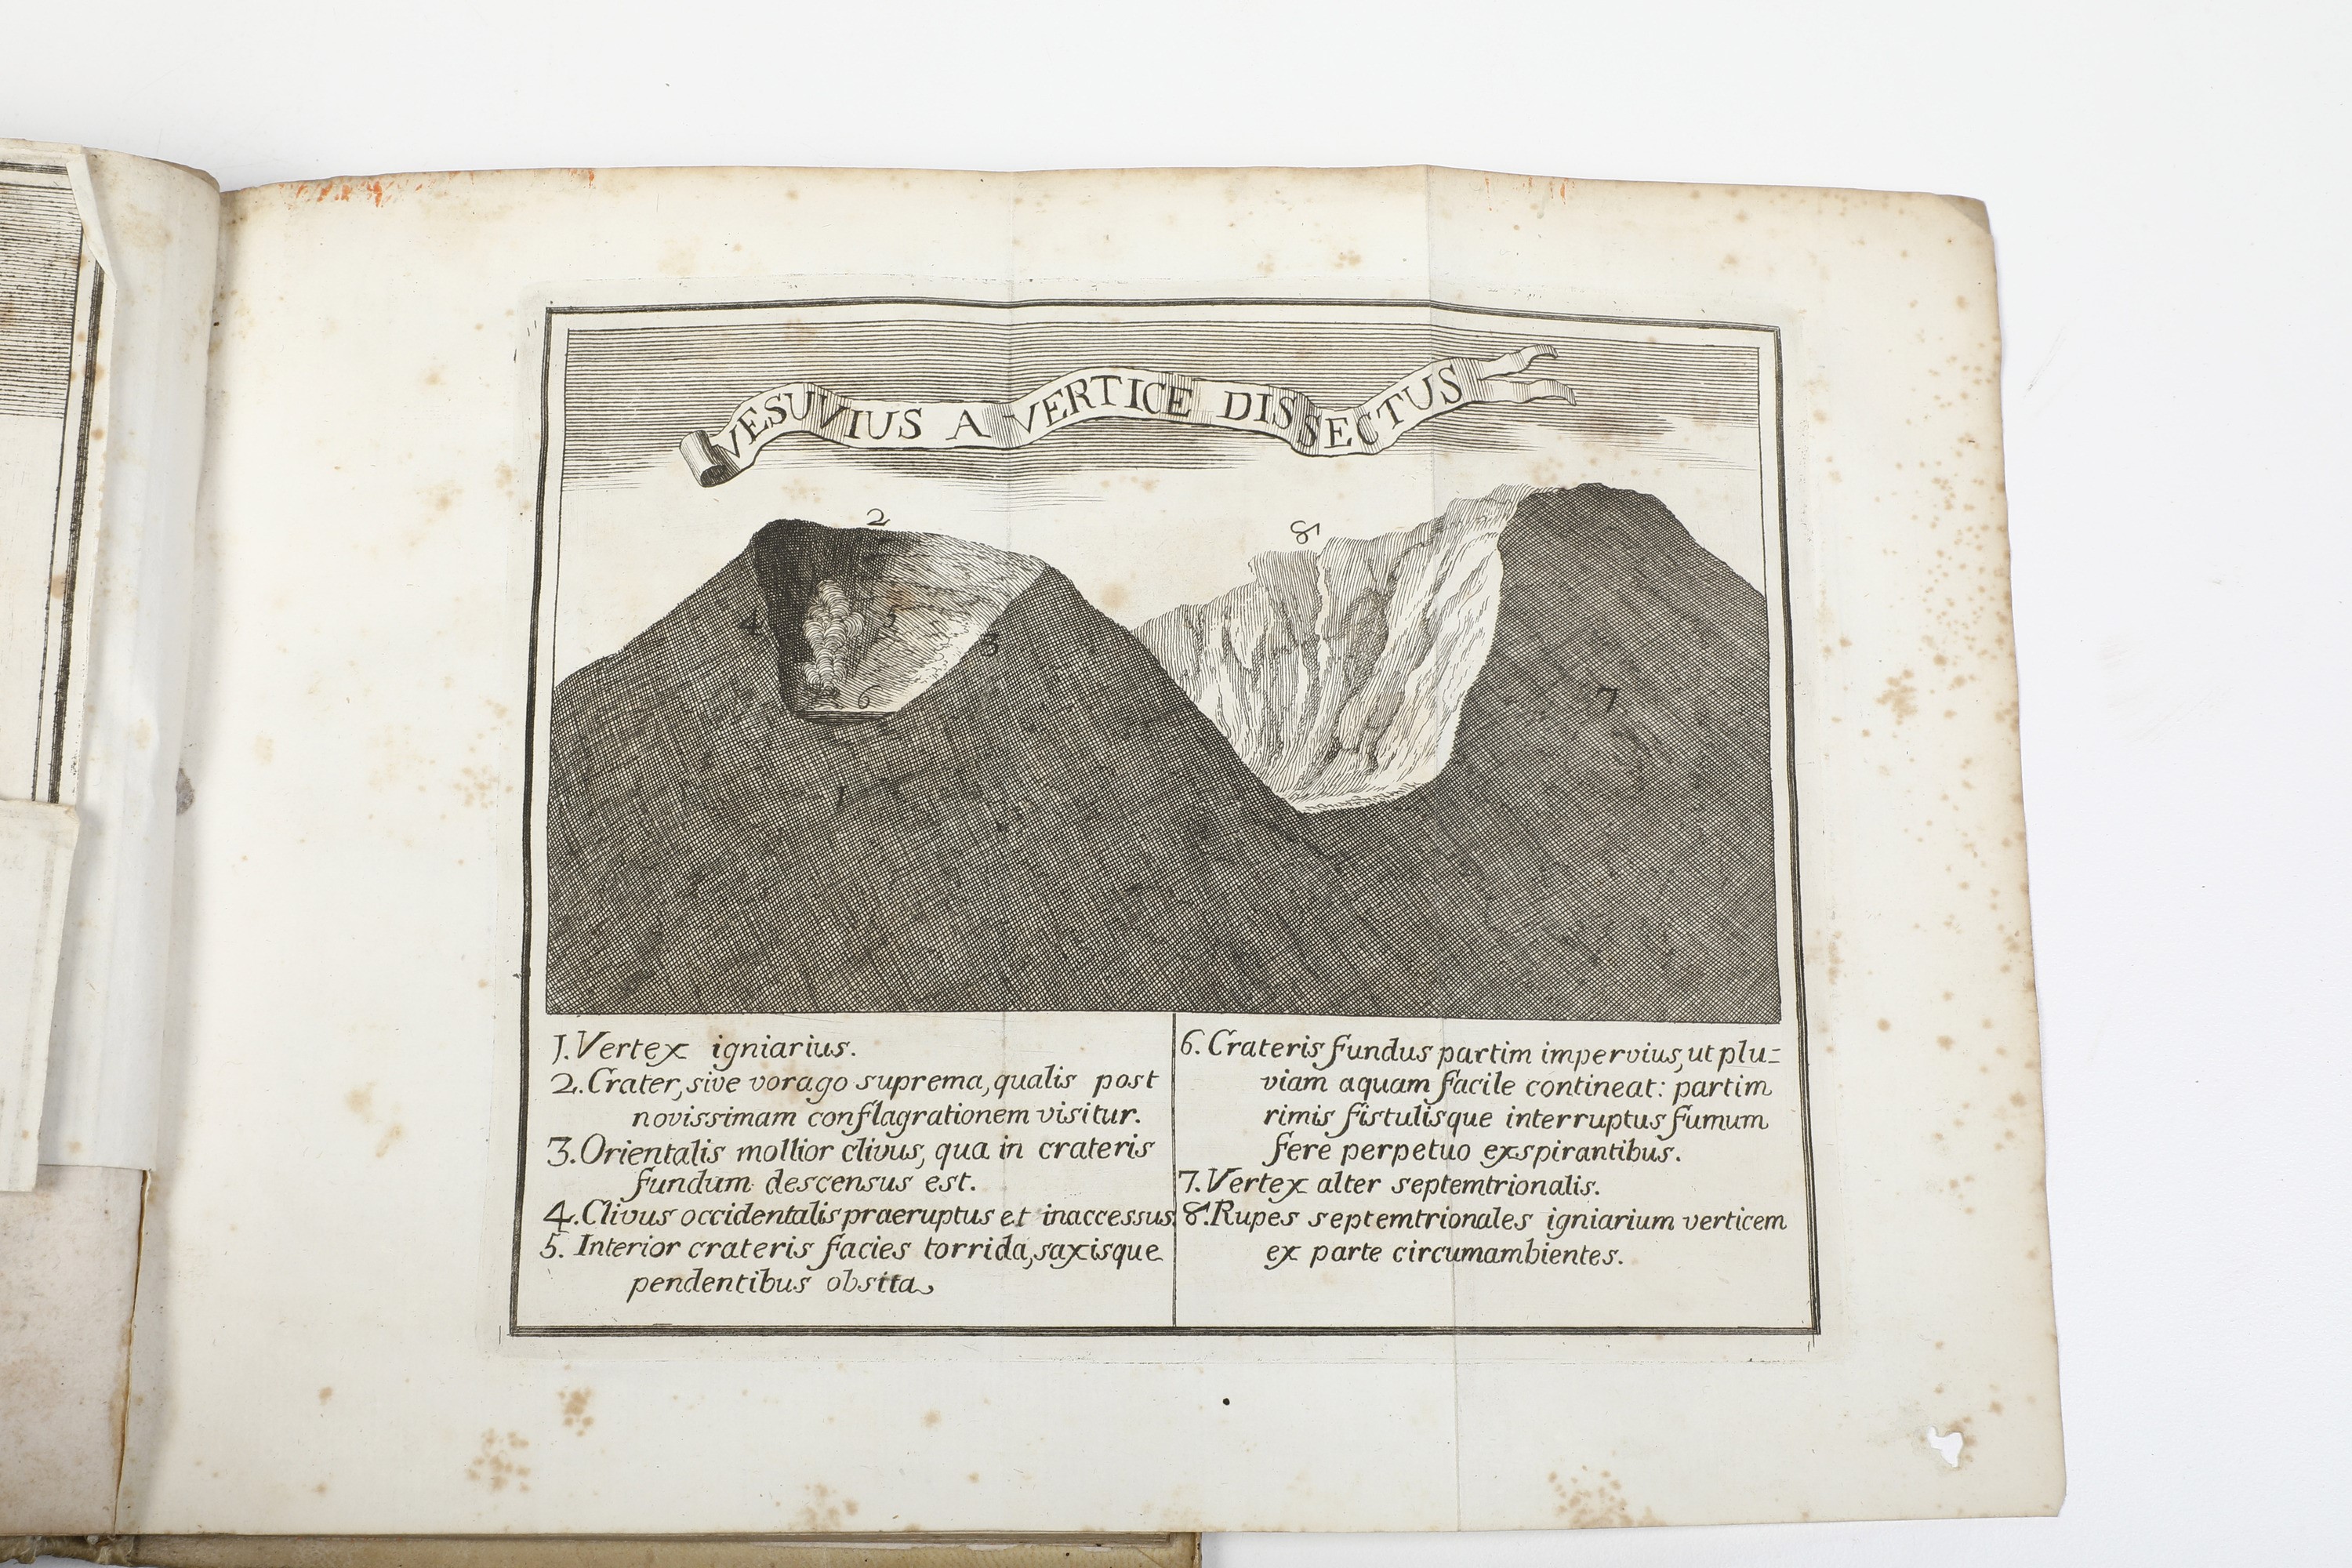 VESUVIUS A VERTICE DISSECTUS
2
8
4
5
3
6
7
1
1. Vertex igniarius.
2. Crater, sive vorago suprema, qualis post
novissimam conflagrationem visitur.
3. Orientalis mollior clivus, qua in crateris
fundum descensus est.
4. Clivus occidentalis praeruptus et inaccessus.
5. Interior crateris facies torrida, saxisque
pendentibus obsita
6. Crateris fundus partim impervius, ut plu=
viam aquam facile contineat: partim
rimis fistulisque interruptus fumum
fere perpetuo exspirantibus.
7. Vertex alter septemtrionalis.
8. Rupes septemtrionales igniarium verticem
ex parte circumambientes.